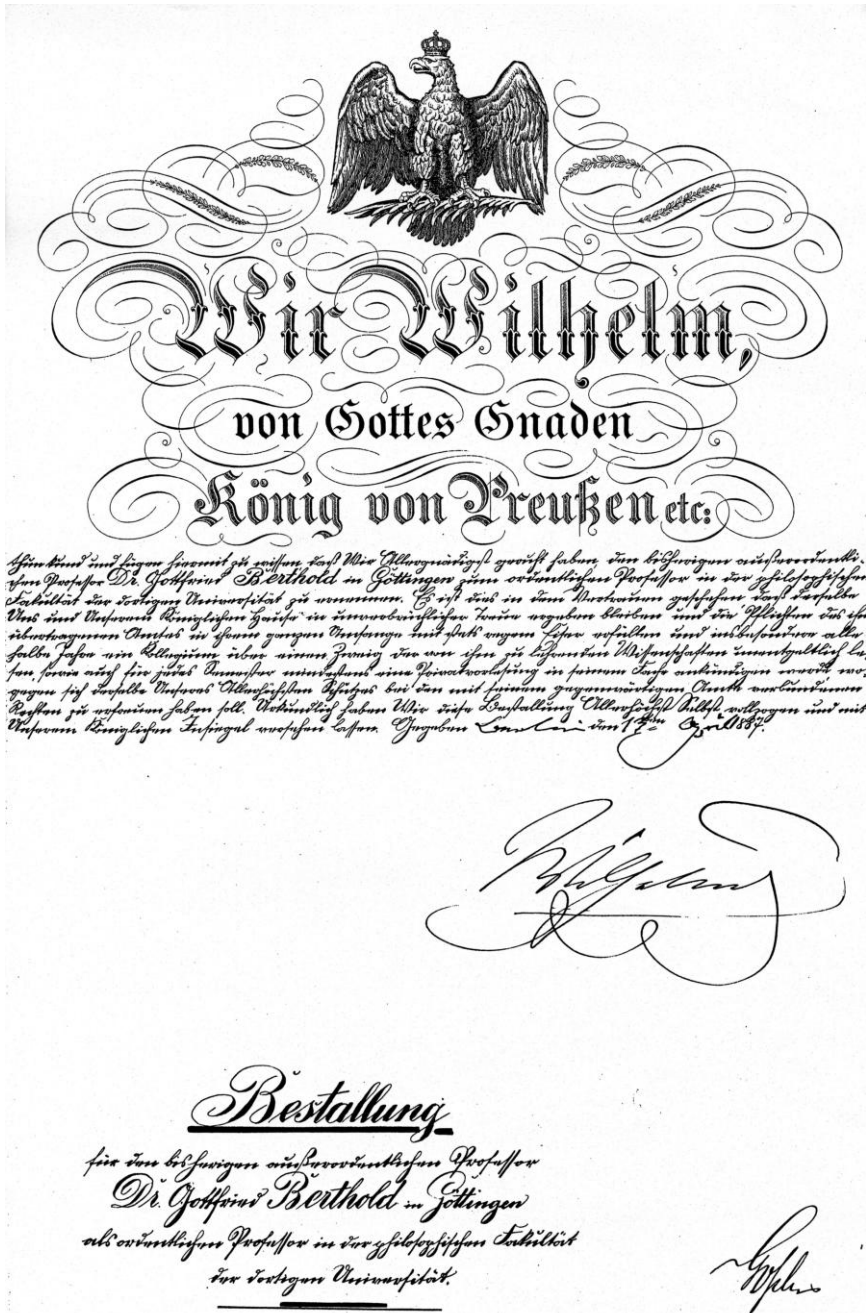 Wir Wilhelm,
von Gottes Gnaden
König von Preußen etc:
thun kund und fügen hiermit zu wissen, daß Wir Allergnädigst geruht haben, den bisherigen außerordentli-
chen Professor Dr. Gottfried Berthold in Göttingen zum ordentlichen Professor in der philosophischen
Fakultät der dortigen Universität zu ernennen. Es ist dies in dem Vertrauen geschehen, daß derselbe
Uns und Unserem Königlichen Hause in unverbrüchlicher Treue ergeben bleiben und die Pflichten des ihm
übertragenen Amtes in ihrem ganzen Umfange mit stets regem Eifer erfüllen und insbesondere alle
halbe Jahre ein Kollegium über einen Zweig der von ihm zu lehrenden Wissenschaften unentgeltlich le-
sen sowie auch für jedes Semester mindestens eine Privatvorlesung in seinem Fache ankündigen werde, wo-
gegen sich derselbe Unseres Allerhöchsten Schutzes bei den mit seinem gegenwärtigen Amte verbundenen
Rechten zu erfreuen haben soll. Urkundlich haben Wir diese Bestallung Allerhöchst Selbst vollzogen und mit
Unserem Königlichen Insiegel versehen lassen. Gegeben Berlin den April 1887.
Wilhelm
Bestallung
für den bisherigen außerordentlichen Professor
Dr. Gottfried Berthold in Göttingen
als ordentlichen Professor in der philosophischen Fakultät
der dortigen Universität.